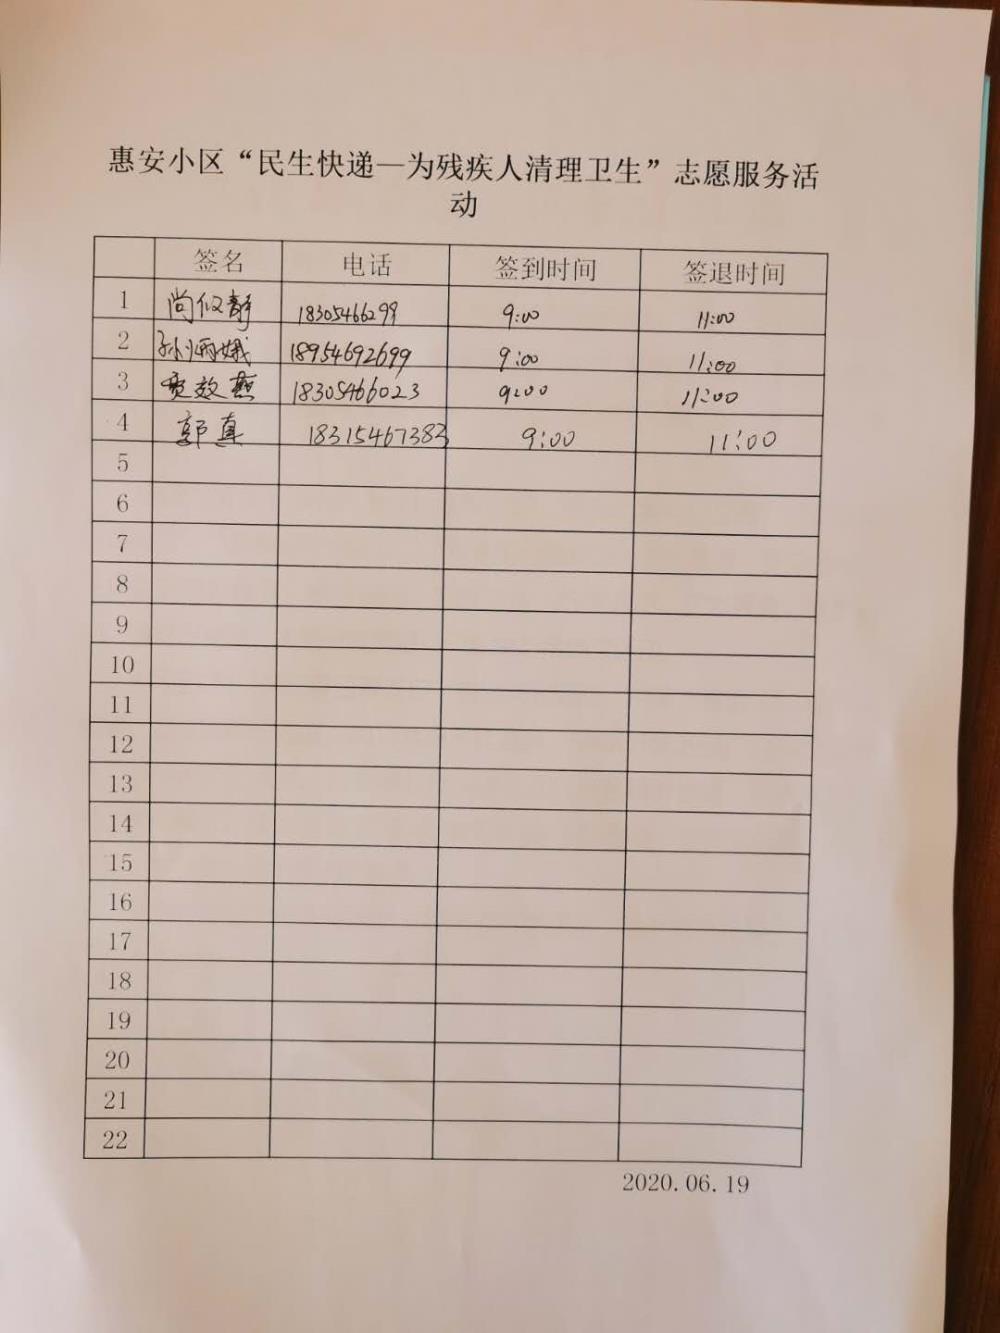 惠安小区“民生快递—为残疾人清理卫生”志愿服务活
动
签名 电话 签到时间 签退时间
1 尚似静 18305466299 9:00 11:00
2 孙丽娥 18954692699 9:00 11:00
3 效燕 18305466023 9:00 11:00
4 郭真 18315467383 9:00 11:00
5
6
7
8
9
10
11
12
13
14
15
16
17
18
19
20
21
22
2020.06.19